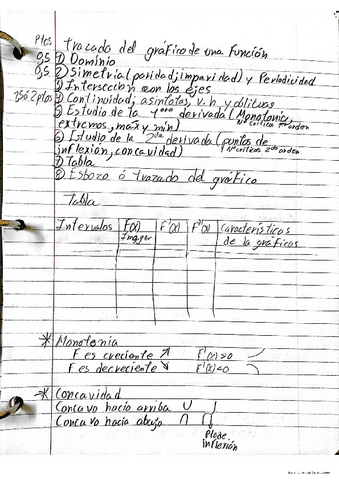 Ptos trazado del gráfico de una función
0,5 1) Dominio
0,5 2) Simetría (paridad; imparidad) y Periodicidad
3) Intersección con los ejes
4) Continuidad; asíntotas, v. h y oblicuas
5) Estudio de la 1era derivada (Monotonía,
extremos, max y min) N° crítico 1er orden
6) Estudio de la 2da derivada (puntos de
inflexión, concavidad) N° críticos 2do orden
7) Tabla
8) Esbozo ó trazado del gráfico
Tabla
Intervalos F(x) F'(x) F''(x) Características
de la gráficas
* Monotonía
F es creciente ↗ F'(x)>0
F es decreciente ↘ F'(x)<0
* Concavidad
Concavo hacia arriba ∪
Concavo hacia abajo ∩
Pto de
inflexión